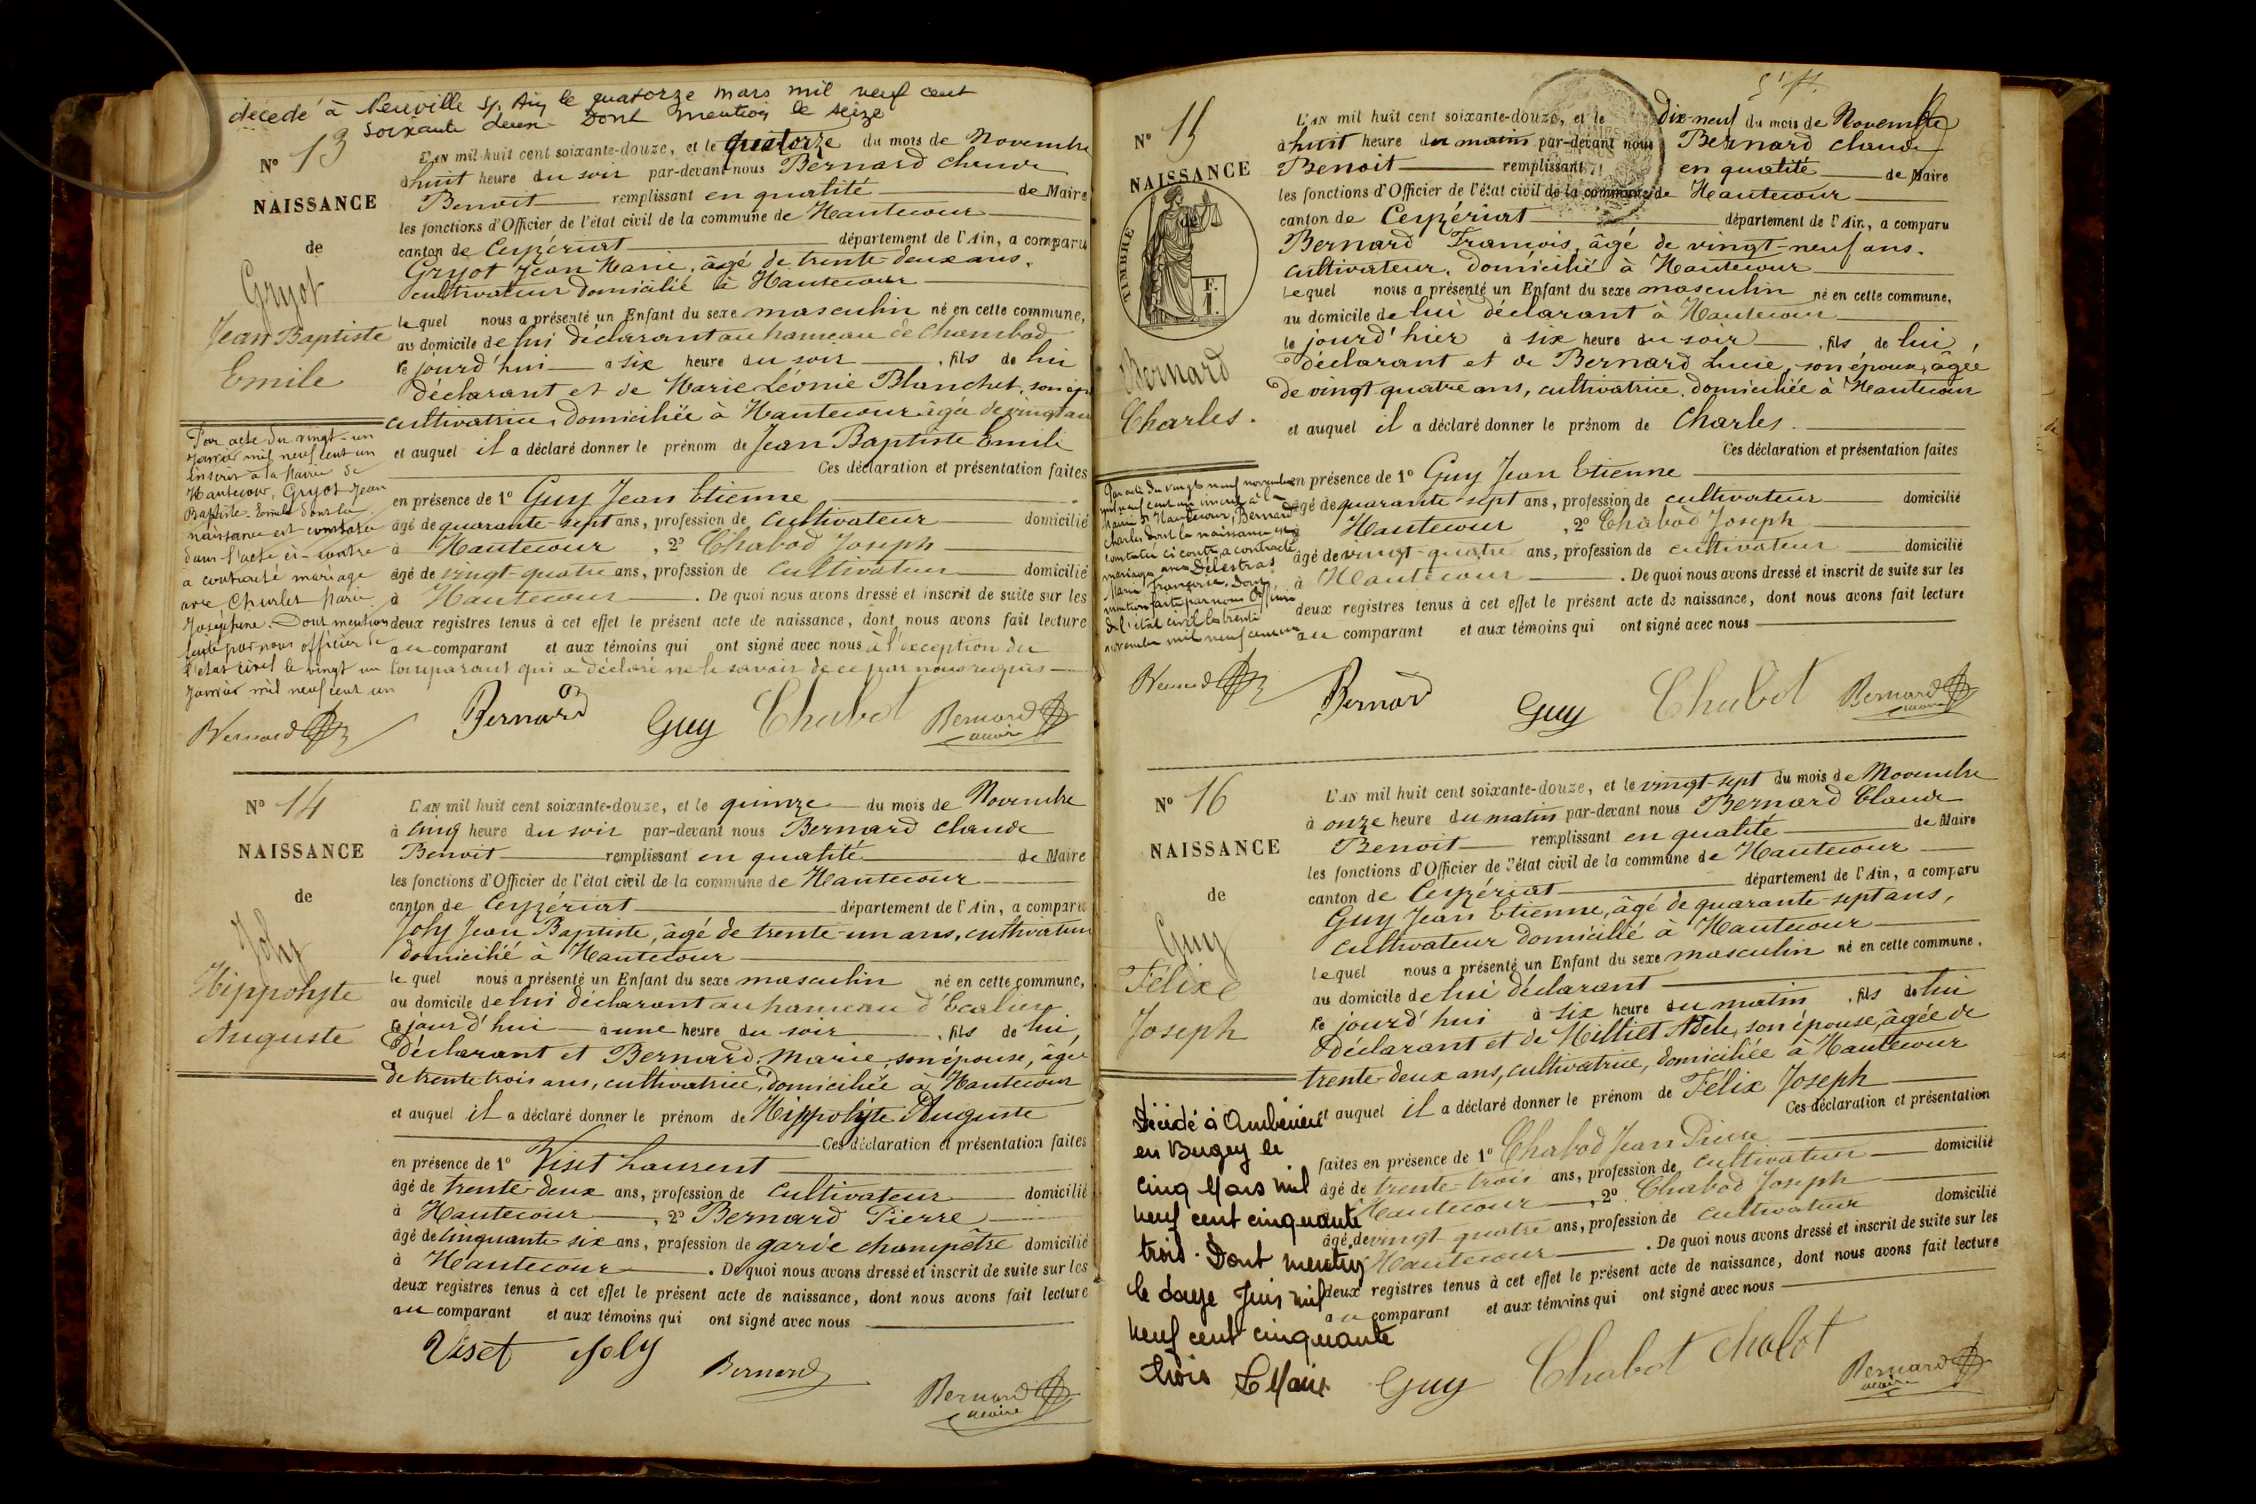 décédé à Neuville s/ Ain le quatorze mars mil neuf cent
soixante deux Dont mention le seize
N° 13
NAISSANCE
de
Gryot
Jean Baptiste
Emile
L'AN mil huit cent soixante-douze, et le quatorze du mois de Novembre
à huit heure du soir par-devant nous Bernard Claude
Benoit remplissant en qualité de Maire
les fonctions d'Officier de l'état civil de la commune de Hautecour
canton de Ceyzériat département de l'Ain, a comparu
Gryot Jean Marie, âgé de trente-deux ans,
cultivateur domicilié à Hautecour
lequel nous a présenté un Enfant du sexe masculin né en cette commune,
au domicile de lui déclarant au hameau de Chambod
ce jourd'hui à six heure du soir, fils de lui
déclarant et de Marie Léonie Blanchet, son
cultivatrice, domiciliée à Hautecour âgée de vingt
et auquel il a déclaré donner le prénom de Jean Baptiste Emile
Ces déclaration et présentation faites
en présence de 1° Guy Jean Etienne
âgé de quarante-sept ans, profession de cultivateur domicilié
à Hautecour, 2° Chabod Joseph
âgé de vingt-quatre ans, profession de cultivateur domicilié
à Hautecour. De quoi nous avons dressé et inscrit de suite sur les
deux registres tenus à cet effet le présent acte de naissance, dont nous avons fait lecture
au comparant et aux témoins qui ont signé avec nous à l'exception du
comparant qui a déclaré ne le savoir de ce par nous requis
Par acte du vingt-un
Janvier mil neuf cent un
inscrit à la Mairie de
Hautecour, Gryot Jean
Baptiste-Emile dont la
naissance est constatée
dans l'acte ci-contre
a contracté mariage
avec Charlet Marie
Joséphine. Dont mention
faite par nous officier de
l'état civil le vingt un
Janvier mil neuf cent un
Bernard
Bernard Guy Chabot Bernard
maire
N° 14
NAISSANCE
de
Joly
Hippolyte
Auguste
L'AN mil huit cent soixante-douze, et le quinze du mois de Novembre
à cinq heure du soir par-devant nous Bernard Claude
Benoit remplissant en qualité de Maire
les fonctions d'Officier de l'état civil de la commune de Hautecour
canton de Ceyzériat département de l'Ain, a comparu
Joly Jean Baptiste, âgé de trente-un ans, cultivateur
domicilié à Hautecour
lequel nous a présenté un Enfant du sexe masculin né en cette commune,
au domicile de lui déclarant au hameau d'
ce jourd'hui à une heure du soir, fils de lui,
déclarant et Bernard Marie, son épouse, âgée
de trente trois ans, cultivatrice, domiciliée à Hautecour
et auquel il a déclaré donner le prénom de Hippolyte Auguste
Ces déclaration et présentation faites
en présence de 1° Viset Laurent
âgé de trente-deux ans, profession de cultivateur domicilié
à Hautecour, 2° Bernard Pierre
âgé de cinquante-six ans, profession de garde champêtre domicilié
à Hautecour. De quoi nous avons dressé et inscrit de suite sur les
deux registres tenus à cet effet le présent acte de naissance, dont nous avons fait lecture
au comparant et aux témoins qui ont signé avec nous
Viset Joly Bernard Bernard
maire
N° 15
NAISSANCE
de
TIMBRE
F.
Bernard
Charles.
L'AN mil huit cent soixante-douze, et le dix-neuf du mois de Novembre
à huit heure du matin par-devant nous Bernard Claude
Benoit remplissant en qualité de Maire
les fonctions d'Officier de l'état civil de la commune de Hautecour
canton de Ceyzériat département de l'Ain, a comparu
Bernard François, âgé de vingt-neuf ans.
cultivateur, domicilié à Hautecour
lequel nous a présenté un Enfant du sexe masculin né en cette commune,
au domicile de lui déclarant à Hautecour
le jourd'hier à six heure du soir, fils de lui,
déclarant et de Bernard Lucie, son épouse, âgée
de vingt quatre ans, cultivatrice, domiciliée à Hautecour
et auquel il a déclaré donner le prénom de Charles.
Ces déclaration et présentation faites
en présence de 1° Guy Jean Etienne
âgé de quarante-sept ans, profession de cultivateur domicilié
à Hautecour, 2° Chabod Joseph
âgé de vingt-quatre ans, profession de cultivateur domicilié
à Hautecour. De quoi nous avons dressé et inscrit de suite sur les
deux registres tenus à cet effet le présent acte de naissance, dont nous avons fait lecture
au comparant et aux témoins qui ont signé avec nous
Par acte du vingt neuf novembre
mil neuf cent un inscrit à la
Mairie de Hautecour, Bernard
Charles dont la naissance est
constatée ci contre, a contracté
mariage avec Delestras
Marie Françoise, Dont
mention faite par nous Officier
de l'état civil le trente
novembre mil neuf cent un
Bernard
Bernard Guy Chabot Bernard
maire
N° 16
NAISSANCE
de
Guy
Félixe
Joseph
L'AN mil huit cent soixante-douze, et le vingt-sept du mois de Novembre
à onze heure du matin par-devant nous Bernard Claude
Benoit remplissant en qualité de Maire
les fonctions d'Officier de l'état civil de la commune de Hautecour
canton de Ceyzériat département de l'Ain, a comparu
Guy Jean Etienne, âgé de quarante-sept ans,
cultivateur domicilié à Hautecour
lequel nous a présenté un Enfant du sexe masculin né en cette commune,
au domicile de lui déclarant
ce jourd'hui à six heure du matin, fils de lui
déclarant et de Milliet Adèle, son épouse, âgée de
trente-deux ans, cultivatrice, domiciliée à Hautecour
et auquel il a déclaré donner le prénom de Félix Joseph
Ces déclaration et présentation
faites en présence de 1° Chabod Jean Pierre
âgé de trente-trois ans, profession de cultivateur domicilié
à Hautecour, 2° Chabod Joseph
âgé de vingt quatre ans, profession de cultivateur domicilié
à Hautecour. De quoi nous avons dressé et inscrit de suite sur les
deux registres tenus à cet effet le présent acte de naissance, dont nous avons fait lecture
au comparant et aux témoins qui ont signé avec nous
Décédé à Ambérieu
en Bugey le
cinq Mars mil
neuf cent cinquante
trois. Dont mention
le douze Juin mil
neuf cent cinquante
trois Le Maire
Guy Chabot Chabot Bernard
maire